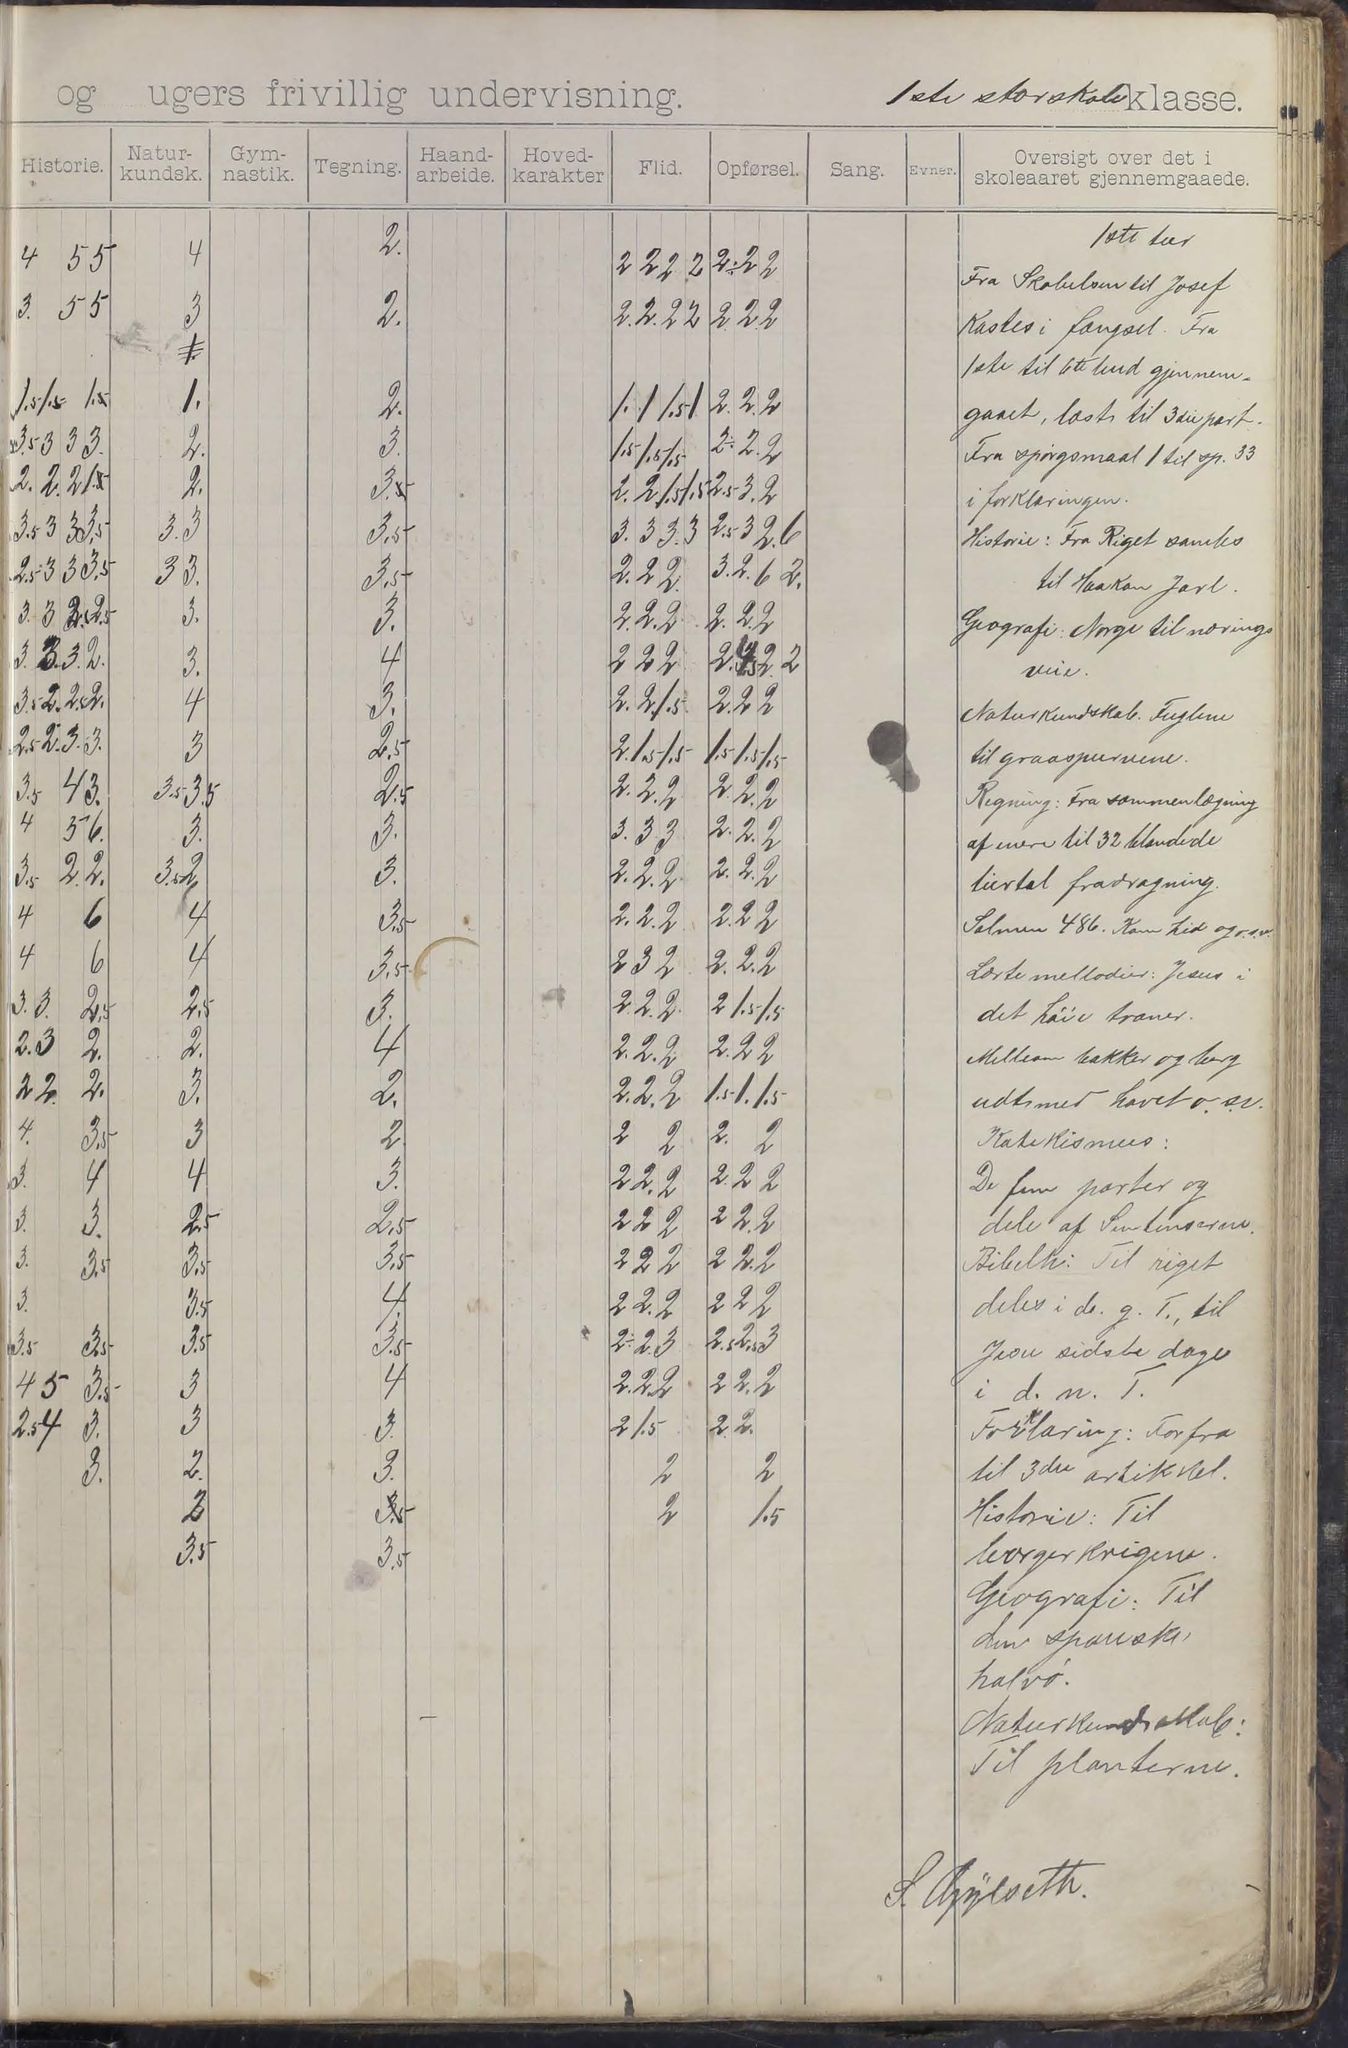 og ugers frivillig undervisning. 1ste storskole klasse.
Historie. Natur-kundsk. Gym-nastik. Tegning. Haand-arbeide. Hoved-karakter Flid. Opførsel. Sang. Evner. Oversigt over det i skoleaaret gjennemgaaede.
4 5 5 4 2. 2 2 2 2 2. 2 2
3. 5 5 3 2. 2. 2. 2 2 2 2 2
1.5 1.5 1.5 1. 2. 1. 1 1.5 1 2. 2. 2
3.5 3 3 3. 2. 3. 1.5 1.5 1.5 2. 2. 2
2. 2. 2 1.5 2. 3.5 2. 2 1.5 1.5 2.5 3. 2
3.5 3 3 3.5 3. 3 3.5 3. 3 3. 3 2.5 3 2. 6
2.5 3 3 3.5 3 3. 3.5 2. 2 2 3. 2. 6 2.
3. 3 2.5 3. 3. 2. 2. 2 2. 2. 2
3. 3. 3. 2. 3. 4 2 2 2 2. 2. 2
3.5 2. 2.5 2. 4 3. 2. 2 1.5 2. 2 2
2.5 2. 3. 3. 3 2.5 2. 1.5 1.5 1.5 1.5 1.5
3.5 4 3. 3.5 3.5 2.5 2. 2. 2 2. 2. 2
4 5 6. 3. 3. 3. 3 3 2. 2. 2
3.5 2 2. 3.5 2 3. 2. 2. 2 2. 2. 2
4 6 4 3.5 2. 2. 2 2. 2 2
4 6 4 3.5 2 3 2 2. 2. 2
3. 3. 2.5 2.5 3. 2. 2. 2 2 1.5 1.5
2. 3 2. 2. 4 2. 2. 2 2. 2 2
2 2. 2. 3. 2. 2. 2. 2 1.5 1. 1.5
4. 3.5 3 2 2 2 2. 2
3. 4 4 3. 2 2. 2 2. 2 2
3. 3. 2.5 2.5 2 2 2 2 2. 2
3. 3.5 3.5 3.5 2 2 2 2 2. 2
3. 3.5 4. 2 2. 2 2 2 2
3.5 3.5 3.5 3.5 2. 2. 3 2.5 2.5 3
4 5 3.5 3 4 2. 2. 2 2 2. 2
2.5 4 3. 3 3. 2 1.5 2. 2.
3. 2. 3. 2 2
2 3.5 2 1.5
3.5 3.5
1ste
Fra Skabelsen til Josef
kastes i fængsel. Fra
1ste til 6te bud gjennem-
gaaet, læst til 3die part.
Fra spørgsmaal 1 til sp. 33
i forklaringen.
Historie: Fra Riget samles
til Haakon Jarl.
Geografi: Norge til nærings
veie.
Naturkundskab. Fuglene
til graaspurvene.
Regning: Fra sammenlægning
af mere til 32 blandede
tiertal fradragning.
Salmen 486. Kom hid og o.s.v.
Lærte mellodier: Jesus i
det høie troner.
Mellem bakker og berg
udt med havet o. s.v.
Katekismus:
De fem parter og
dele af Sentenserne.
Bibelh: Til riget
deles i de. g. T., til
Jesu sidste dage
i d. n. T.
Forklaring: Forfra
til 3die artikkel.
Historie: Til
borgerkrigene.
Geografi: Til
den spanske
halvø.
Naturkundskab:
Til planterne.